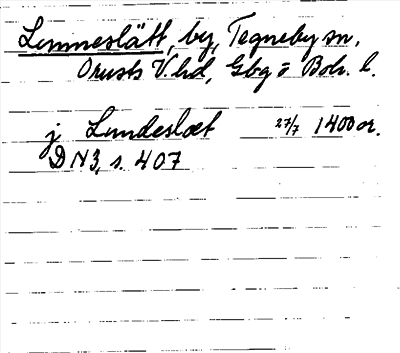 Lunneslätt, by, Tegneby sn,
Orusts V. hd, Gbg o Boh. l.
j Lundeslæt 27/7 1400 or.
DN3, s. 407